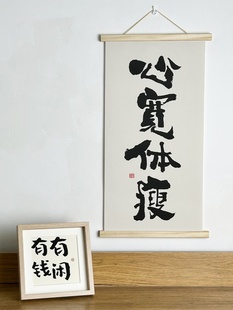 心寬体瘦
有闲
有钱